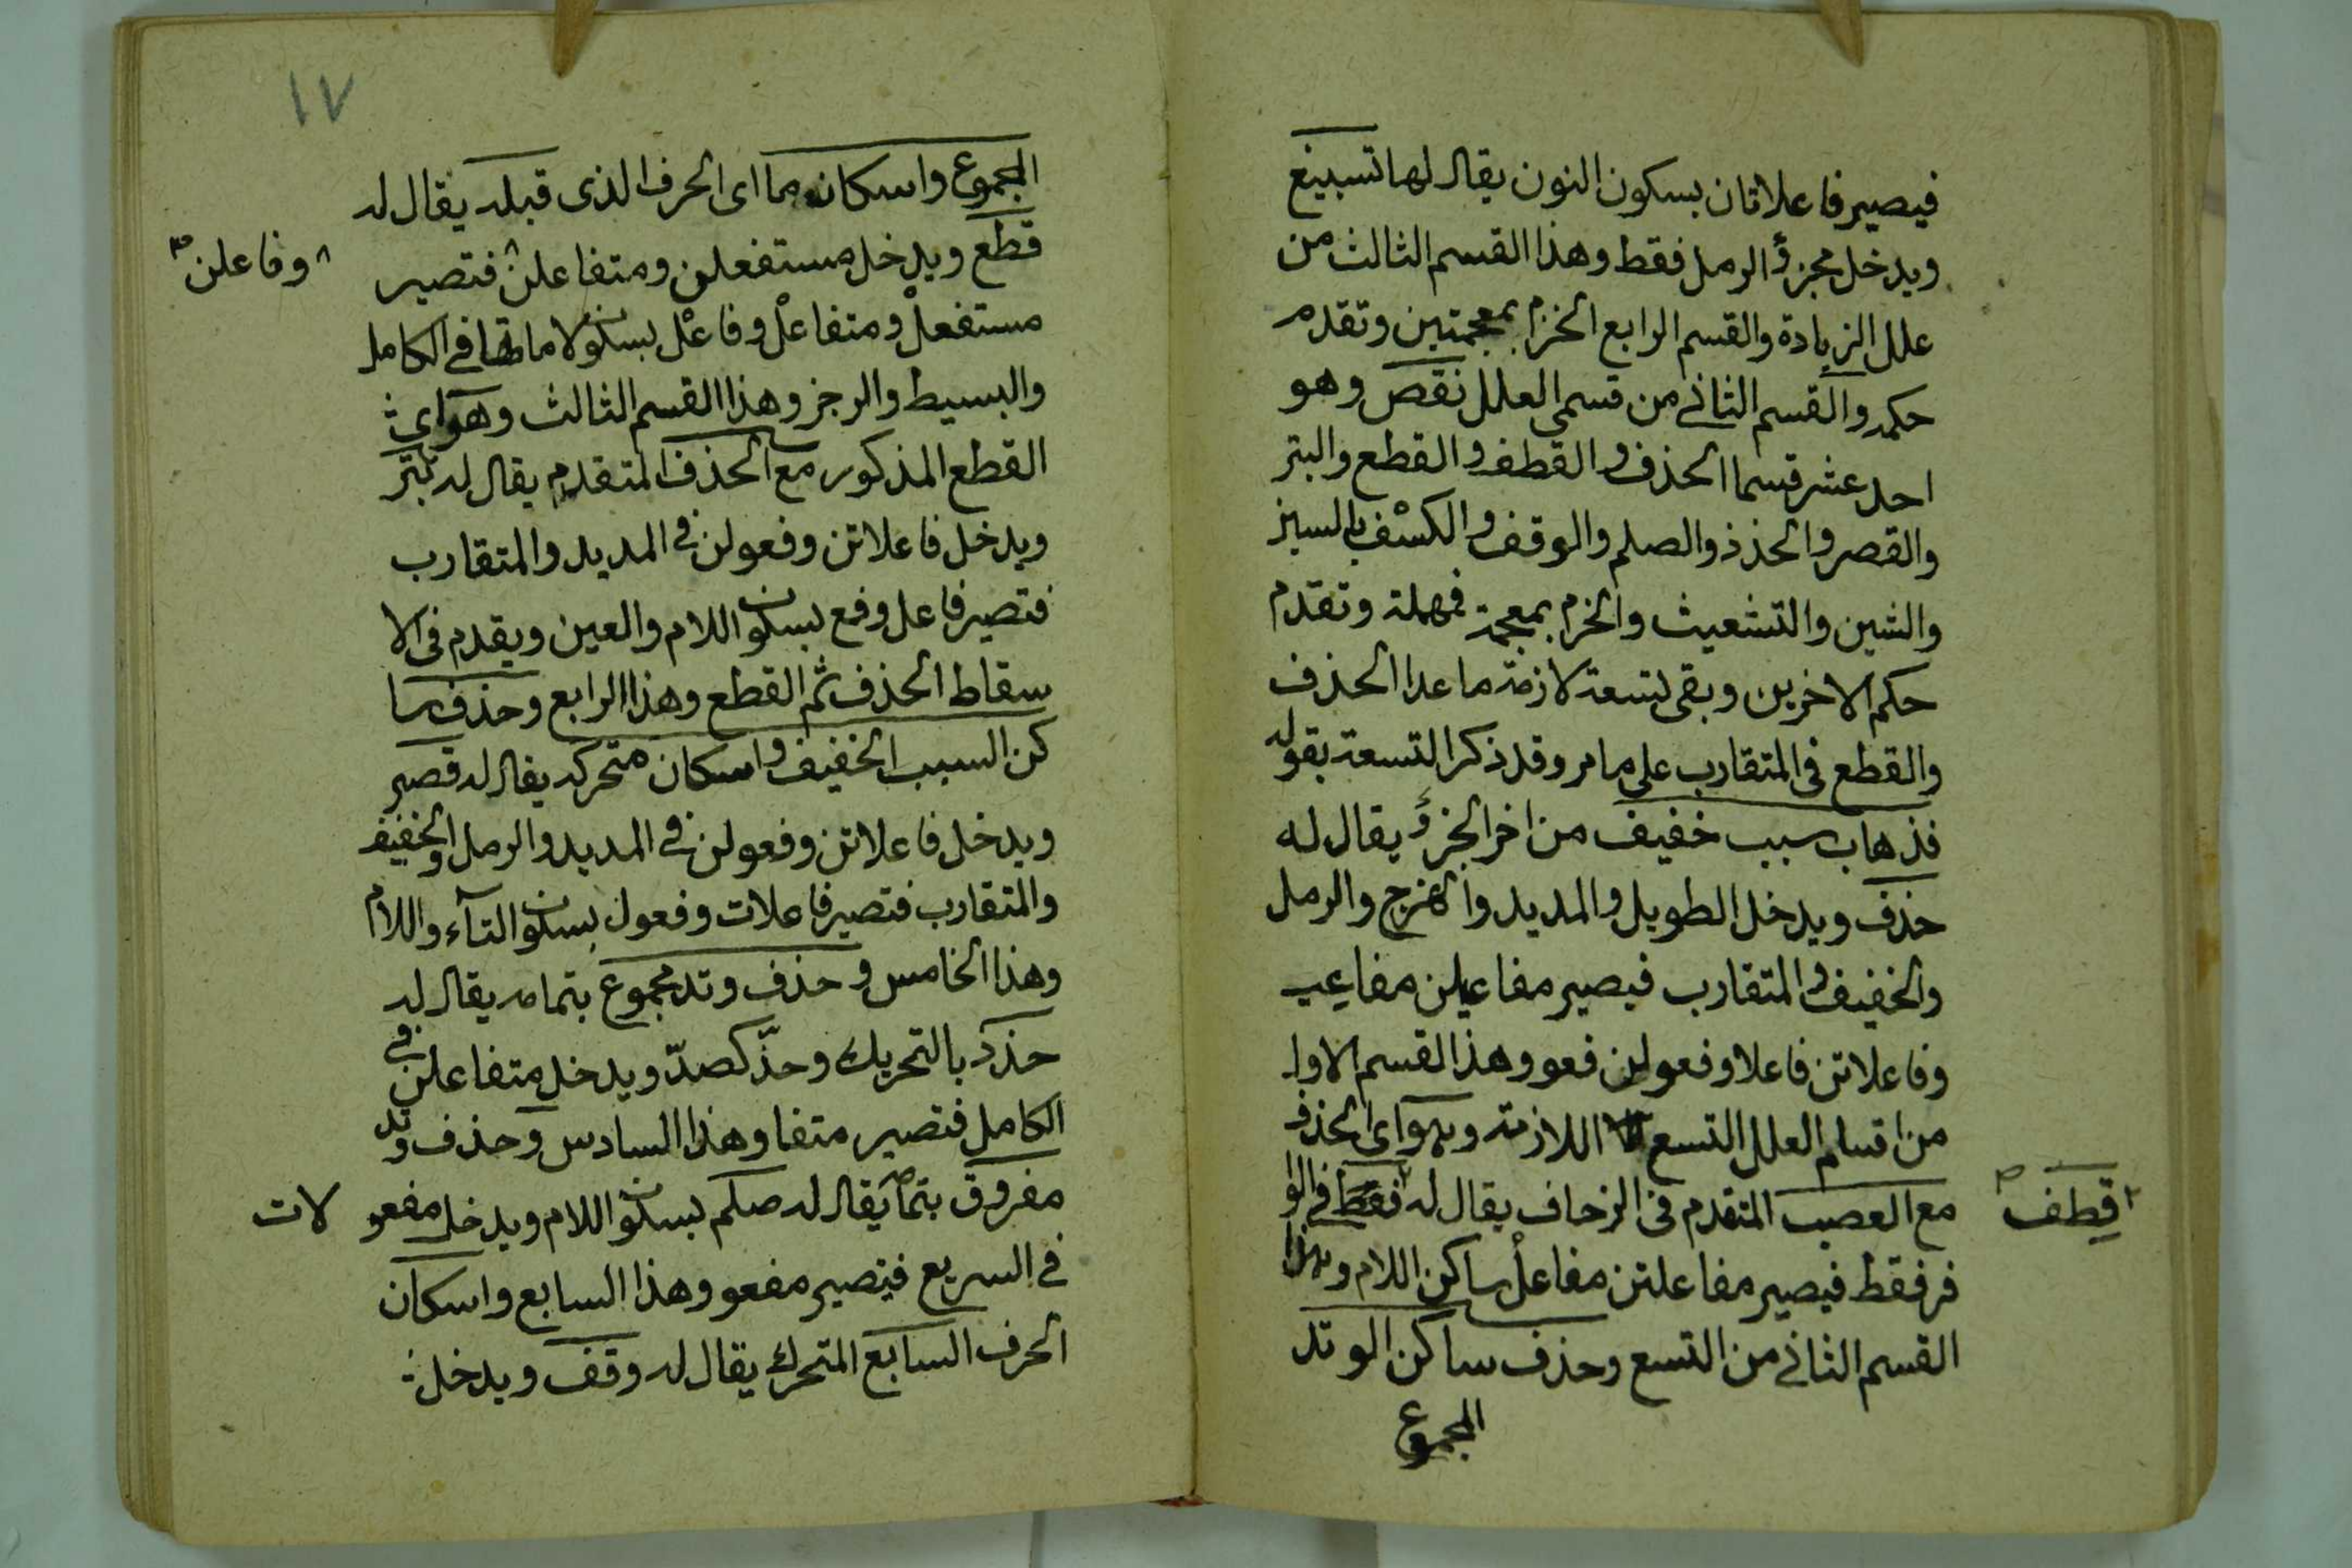 فيصير فاعلاتان بسكون النون يقال لها تسبيغ
ويدخل مجزؤ الرمل فقط وهذا القسم الثالث من
علل الزيادة والقسم الرابع الخزم بمعجمتين وتقدم
حكمه والقسم الثاني من قسمي العلل نقص وهو
احد عشر قسما الحذف والقطف والقطع والبتر
والقصر والحذذ والصلم والوقف والكسف بالسين
والشين والتشعيث والخرم بمعجمة فمهملة وتقدم
حكم الاخرين وبقى تسعة لازمة ما عدا الحذف
والقطع في المتقارب على مامر وقد ذكر التسعة بقوله
فذهاب سبب خفيف من اخر الجزؤ يقال له
حذف ويدخل الطويل والمديد والهزج والرمل
والخفيف والمتقارب فيصير مفاعيلن مفاعي
وفاعلاتن فاعلا وفعولن فعو وهذا القسم الاول
من اقسام العلل التسع اللازمة وهو اى الحذف
مع العصب المتقدم في الزحاف يقال له فقط في الوا
قطف
فر فقط فيصير مفاعلتن مفاعلْ ساكن اللام وهذا
القسم الثاني من التسع وحذف ساكن الوتد
المجموع
١٧
المجموع واسكان ما اى الحرف الذى قبله يقال له
قطع ويدخل مستفعلن ومتفاعلن فتصير
وفاعلن
مستفعلْ ومتفاعلْ وفاعْل بسكون لاماتها في الكامل
والبسيط والرجز وهذا القسم الثالث وهو اى
القطع المذكور مع الحذف المتقدم يقال له بتر
ويدخل فاعلاتن وفعولن في المديد والمتقارب
فتصير فاعل وفع بسكون اللام والعين ويقدم في الا
سقاط الحذف ثم القطع وهذا الرابع وحذف سا
كن السبب الخفيف واسكان متحركه يقال له قصر
ويدخل فاعلاتن وفعولن في المديد والرمل والخفيف
والمتقارب فتصير فاعلات وفعول بسكون التآء واللام
وهذا الخامس وحذف وتد مجموع بتمامه يقال له
حذذ بالتحريك وحذّ كصدّ ويدخل متفاعلن في
الكامل فتصير متفا وهذا السادس وحذف وتد
مفروق بتمامه يقال له صلم بسكون اللام ويدخل مفعو
لات
في السريع فيصير مفعو وهذا السابع واسكان
الحرف السابع المتحرك يقال له وقف ويدخل